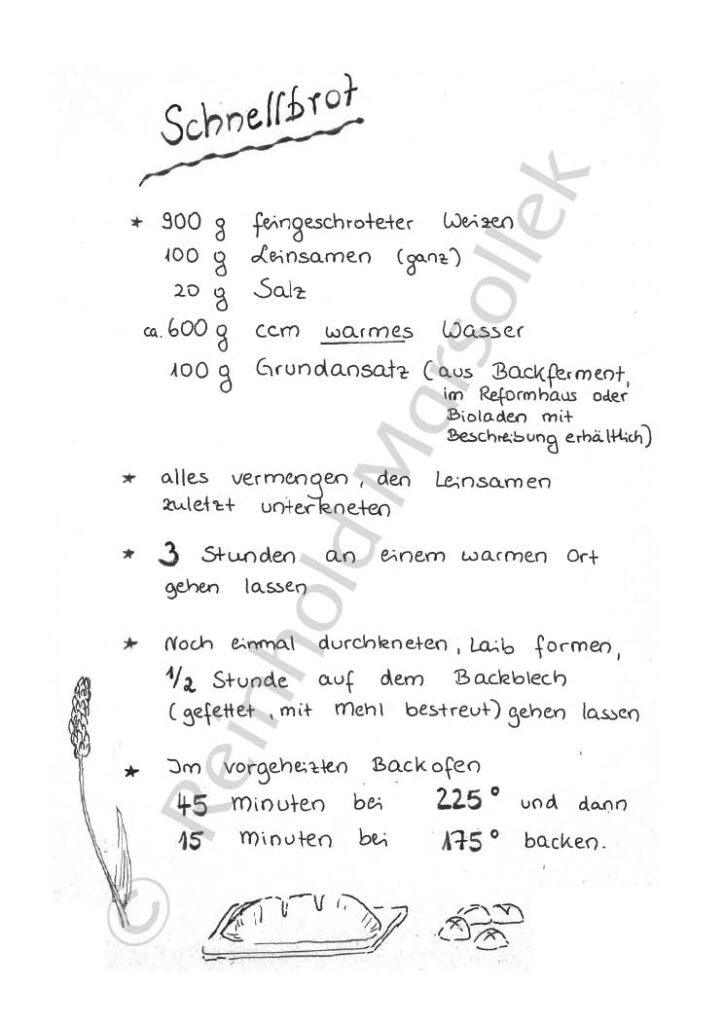 Schnellbrot
* 900 g feingeschroteter Weizen
100 g Leinsamen (ganz)
20 g Salz
ca. 600 g ccm warmes Wasser
100 g Grundansatz (aus Backferment,
im Reformhaus oder
Bioladen mit
Beschreibung erhältlich)
* alles vermengen, den Leinsamen
zuletzt unterkneten
* 3 Stunden an einem warmen Ort
gehen lassen
* Noch einmal durchkneten, Laib formen,
1/2 Stunde auf dem Backblech
(gefettet, mit Mehl bestreut) gehen lassen
* Im vorgeheizten Backofen
45 Minuten bei 225° und dann
15 Minuten bei 175° backen.
© Reinhold Marsollek